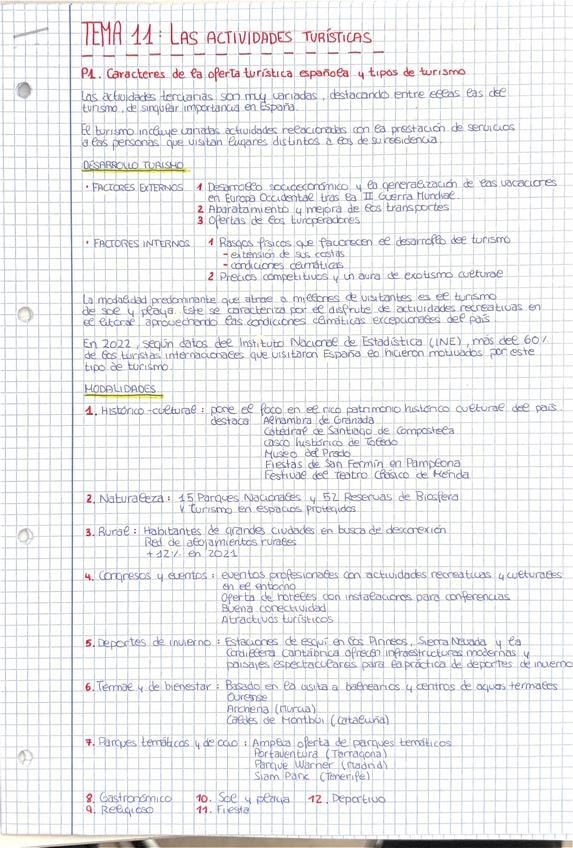 TEMA 11: LAS ACTIVIDADES TURÍSTICAS
P1. Caracteres de la oferta turística española y tipos de turismo
Las actividades terciarias son muy variadas, destacando entre ellas las del
turismo, de singular importancia en España.
El turismo incluye variadas actividades relacionadas con la prestación de servicios
a las personas que visitan lugares distintos a los de su residencia.
DESARROLLO TURISMO
· FACTORES EXTERNOS 1 Desarrollo socioeconómico y la generalización de las vacaciones
en Europa Occidental tras la II Guerra Mundial.
2 Abaratamiento y mejora de los transportes
3 Ofertas de los turoperadores
· FACTORES INTERNOS 1 Rasgos físicos que favorecen el desarrollo del turismo
- extensión de sus costas
- condiciones climáticas
2 Precios competitivos y un aura de exotismo cultural
La modalidad predominante que atrae a millones de visitantes es el turismo
de sol y playa. Este se caracteriza por el disfrute de actividades recreativas en
el litoral aprovechando las condiciones climáticas excepcionales del país
En 2022, según datos del Instituto Nacional de Estadística (INE), más del 60%
de los turistas internacionales que visitaron España lo hicieron motivados por este
tipo de turismo.
MODALIDADES
1. Histórico-cultural: pone el foco en el rico patrimonio histórico cultural del país.
destaca Alhambra de Granada
Catedral de Santiago de Compostela
casco histórico de Toledo
Museo del Prado
Fiestas de San Fermín en Pamplona
Festival del Teatro Clásico de Mérida
2. Naturaleza: 15 Parques Nacionales y 52 Reservas de Biosfera
Turismo en espacios protegidos
3. Rural: Habitantes de grandes ciudades en busca de desconexión
Red de alojamientos rurales
+12% en 2021
4. Congresos y eventos: eventos profesionales con actividades recreativas y culturales
en el entorno
Oferta de hoteles con instalaciones para conferencias
Buena conectividad
Atractivos turísticos
5. Deportes de invierno: Estaciones de esquí en los Pirineos, Sierra Nevada y la
Cordillera cantábrica ofrecen infraestructuras modernas y
paisajes espectaculares para la práctica de deportes de invierno
6. Termal y de bienestar: Basado en la visita a balnearios y centros de aguas termales
Ourense
Archena (Murcia)
Caldes de Montbui (Cataluña)
7. Parques temáticos y de ocio: Amplia oferta de parques temáticos
Portaventura (Tarragona)
Parque Warner (Madrid)
Siam Park (Tenerife)
8. Gastronómico 10. Sol y playa 12. Deportivo
9. Religioso 11. Fiesta